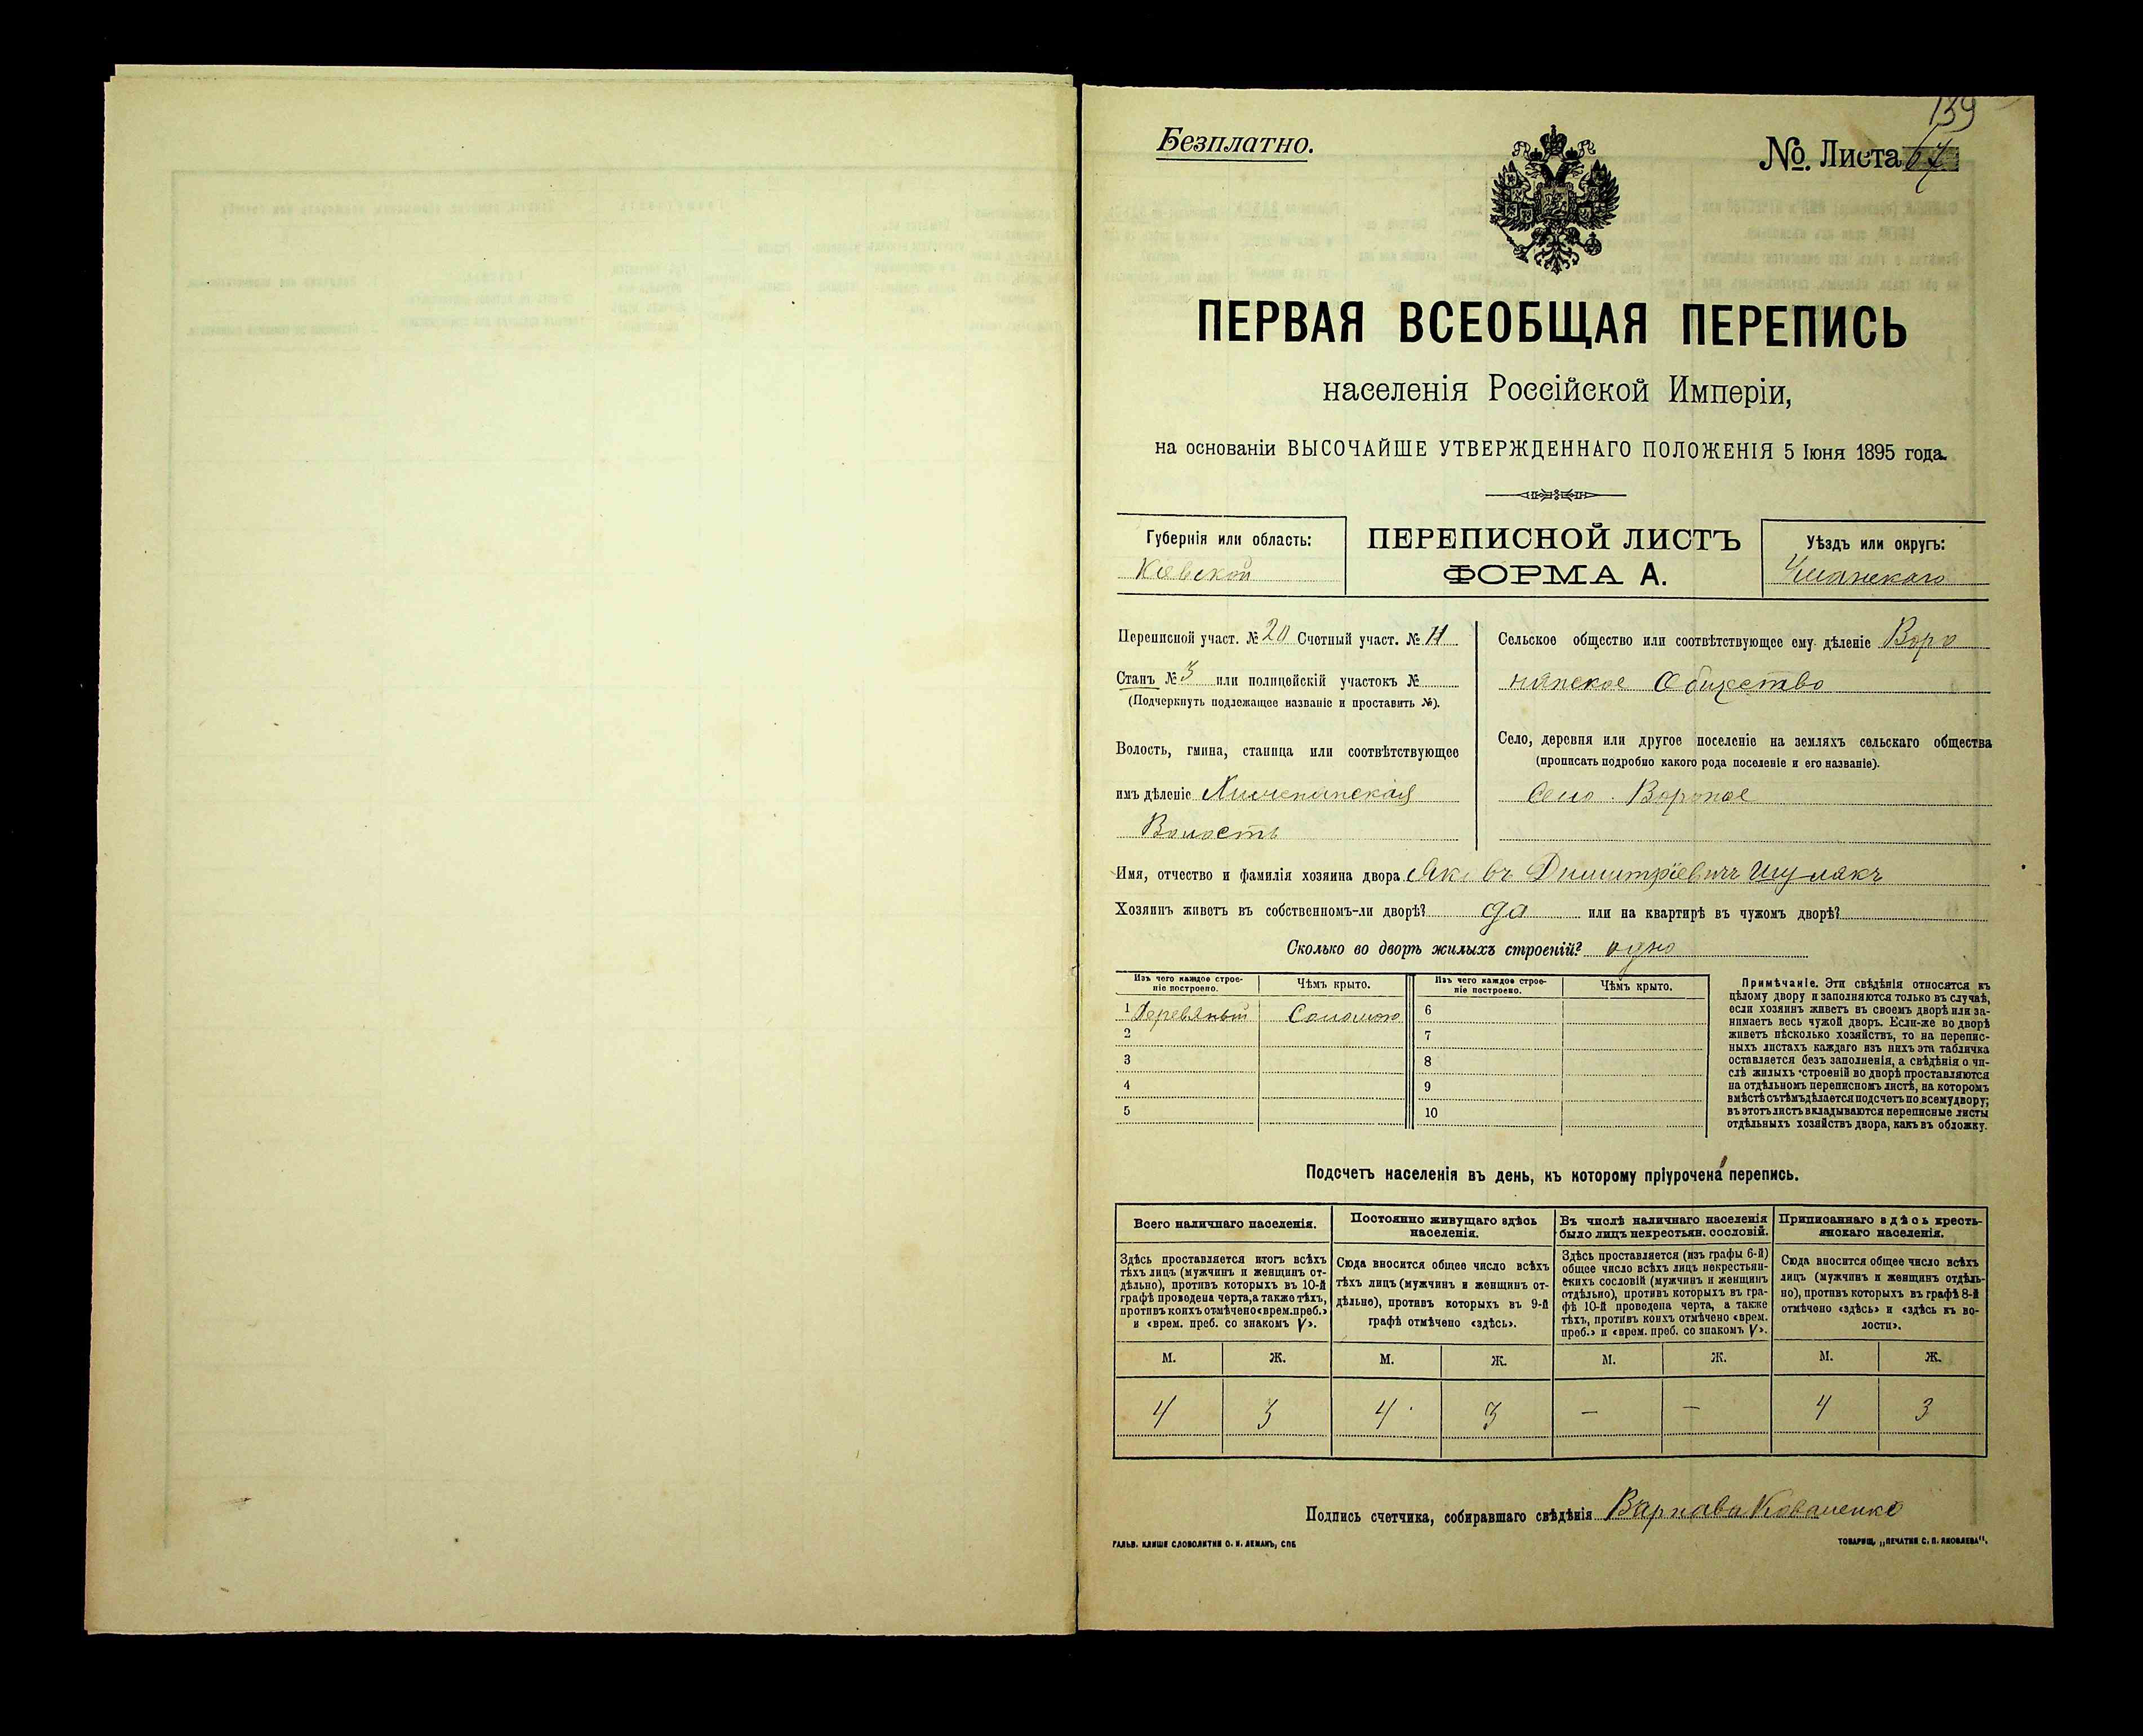 139
Безплатно.
№ Листа 67
ПЕРВАЯ ВСЕОБЩАЯ ПЕРЕПИСЬ
населенія Россійской Имперіи,
на основаніи ВЫСОЧАЙШЕ УТВЕРЖДЕННАГО ПОЛОЖЕНІЯ 5 Іюня 1895 года.
Губернія или область:
Кіевской
ПЕРЕПИСНОЙ ЛИСТЪ
ФОРМА А.
Уѣздъ или округъ:
Уманскаго
Переписной участ. № 20 Счетный участ. № 11
Станъ № 3 или полицейскій участокъ №
(Подчеркнуть подлежащее названіе и проставить №).
Волость, гмина, станица или соотвѣтствующее
имъ дѣленіе
Волость
Сельское общество или соотвѣтствующее ему дѣленіе Воро
нянское Общество
Село, деревня или другое поселеніе на земляхъ сельскаго общества
(прописать подробно какого рода поселеніе и его названіе).
Село Вороное
Имя, отчество и фамилія хозяина двора Яковъ Димитріевичъ Шулякъ
Хозяинъ живетъ въ собственномъ-ли дворѣ? да или на квартирѣ въ чужомъ дворѣ?
Сколько во дворѣ жилыхъ строеній? одно
Изъ чего каждое строе-
ніе построено.
Чѣмъ крыто.
Изъ чего каждое строе-
ніе построено.
Чѣмъ крыто.
1 Деревяный Соломою 6
2 7
3 8
4 9
5 10
Примѣчаніе. Эти свѣдѣнія относятся къ
цѣлому двору и заполняются только въ случаѣ,
если хозяинъ живетъ въ своемъ дворѣ или за-
нимаетъ весь чужой дворъ. Если-же во дворѣ
живетъ нѣсколько хозяйствъ, то на перепис-
ныхъ листахъ каждаго изъ нихъ эта табличка
оставляется безъ заполненія, а свѣдѣнія о чи-
слѣ жилыхъ строеній во дворѣ проставляются
на отдѣльномъ переписномъ листѣ, на которомъ
вмѣстѣ съ тѣмъ дѣлается подсчетъ по всему двору;
въ этотъ листъ вкладываются переписные листы
отдѣльныхъ хозяйствъ двора, какъ въ обложку.
Подсчетъ населенія въ день, къ которому пріурочена перепись.
Всего наличнаго населенія.
Здѣсь проставляется итогъ всѣхъ
тѣхъ лицъ (мужчинъ и женщинъ от-
дѣльно), противъ которыхъ въ 10-й
графѣ проведена черта, а также тѣхъ,
противъ коихъ отмѣчено «врем. преб.»
и «врем. преб. со знакомъ V».
Постоянно живущаго здѣсь
населенія.
Сюда вносится общее число всѣхъ
тѣхъ лицъ (мужчинъ и женщинъ от-
дѣльно), противъ которыхъ въ 9-й
графѣ отмѣчено «здѣсь».
Въ числѣ наличнаго населенія
было лицъ некрестьян. сословій.
Здѣсь проставляется (изъ графы 6-й)
общее число всѣхъ лицъ некрестьян-
скихъ сословій (мужчинъ и женщинъ
отдѣльно), противъ которыхъ въ гра-
фѣ 10-й проведена черта, а также
тѣхъ, противъ коихъ отмѣчено «врем.
преб.» и «врем. преб. со знакомъ V».
Приписаннаго здѣсь кресть-
янскаго населенія.
Сюда вносится общее число всѣхъ
лицъ (мужчинъ и женщинъ отдѣль-
но), противъ которыхъ въ графѣ 8-й
отмѣчено «здѣсь» и «здѣсь къ во-
лости».
М. Ж. М. Ж. М. Ж. М. Ж.
4 3 4 3 — — 4 3
Подпись счетчика, собиравшаго свѣдѣнія Варнава Коваленко
ГАЛЬВ. КЛИШЕ СЛОВОЛИТНИ О. И. ЛЕМАНЪ, СПБ
ТОВАРИЩ. „ПЕЧАТНИ С. П. ЯКОВЛЕВА".